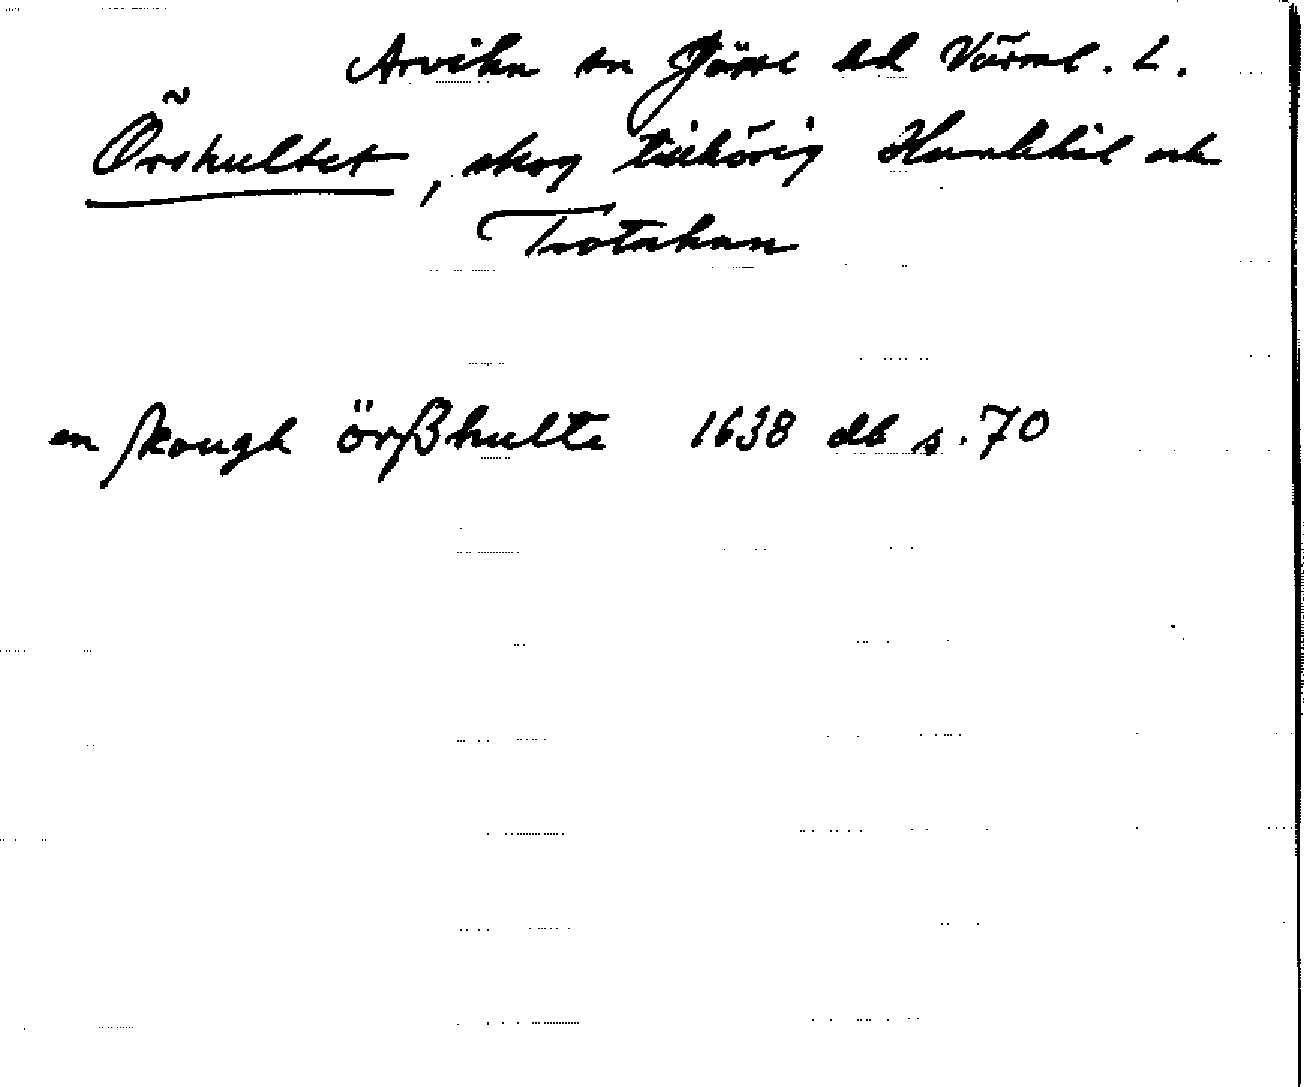 Arvika sn Jösse hd Värml. L.
Örskultet, skog tillhörig Humlekil och
Trotakan
en skough örßhulte 1638 db s. 70